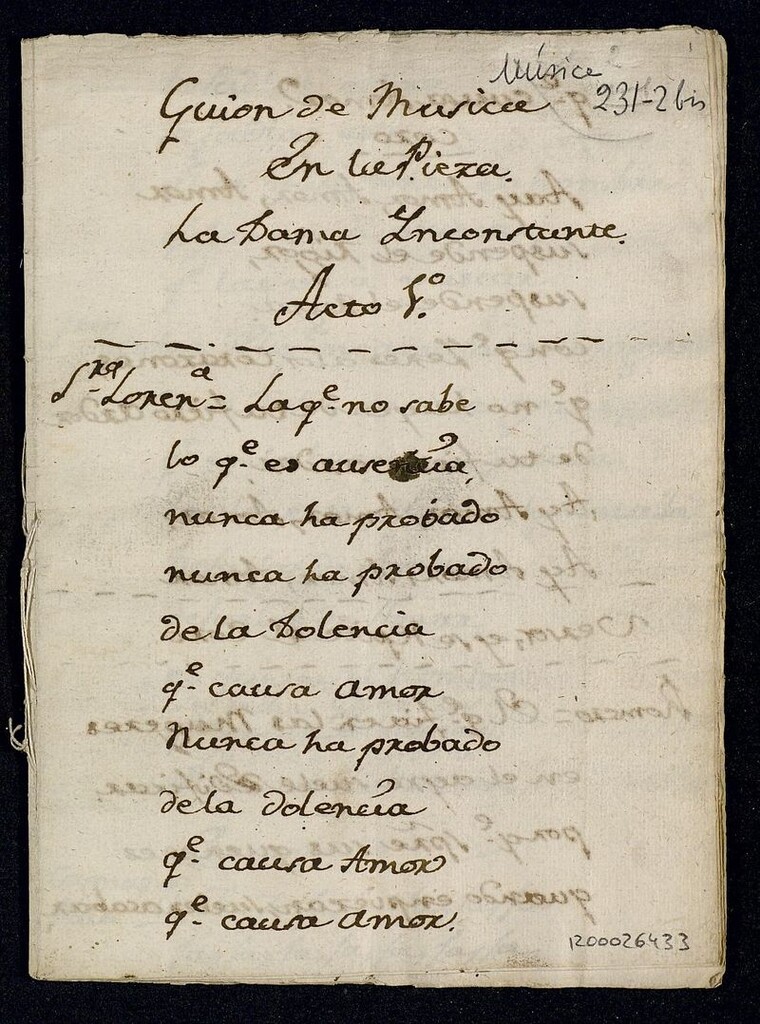 Música
231-2 bis
Guion de Musica
En la Pieza.
La Dama Inconstante.
Acto 1.º
Sra. Lorenª = La qe. no sabe
lo qe. es ausencia,
nunca ha probado
nunca ha probado
de la Dolencia
qe. causa Amor
Nunca ha probado
de la dolencia
qe. causa Amor
qe. causa Amor.
1200026433